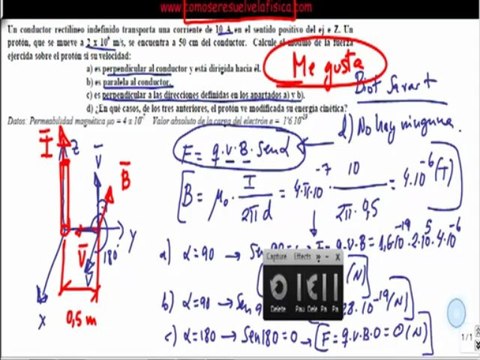 www.comoseresuelvelafisica.com
Un conductor rectilíneo indefinido transporta una corriente de 10 A en el sentido positivo del eje Z. Un
protón, que se mueve a 2 x 10⁵ m/s, se encuentra a 50 cm del conductor. Calcule el módulo de la fuerza
ejercida sobre el protón si su velocidad:
a) es perpendicular al conductor y está dirigida hacia él.
b) es paralela al conductor.
c) es perpendicular a las direcciones definidas en los apartados a) y b).
d) ¿En qué casos, de los tres anteriores, el protón ve modificada su energía cinética?
Datos: Permeabilidad magnética μo = 4 π 10⁻⁷ Valor absoluto de la carga del electrón e = 1'6 10⁻¹⁹
Me gusta
d) No hay ninguna.
F = q.v.B.senα
B = μo . I / 2πd = 4.π.10⁻⁷ 10 / 2π.0,5 = 4.10⁻⁶ (T)
I
Z
V
B
Y
V
180°
X
0,5 m
a) α=90 → F = q.v.B = 1,6.10⁻¹⁹.2.10⁵.4.10⁻⁶
(N)
b) α=90 → 10⁻¹⁹ (N)
c) α=180 → Sen180=0 → F = q.v.B.0 = 0 (N)
Capture Effects
Delete Pau Pa
1/1